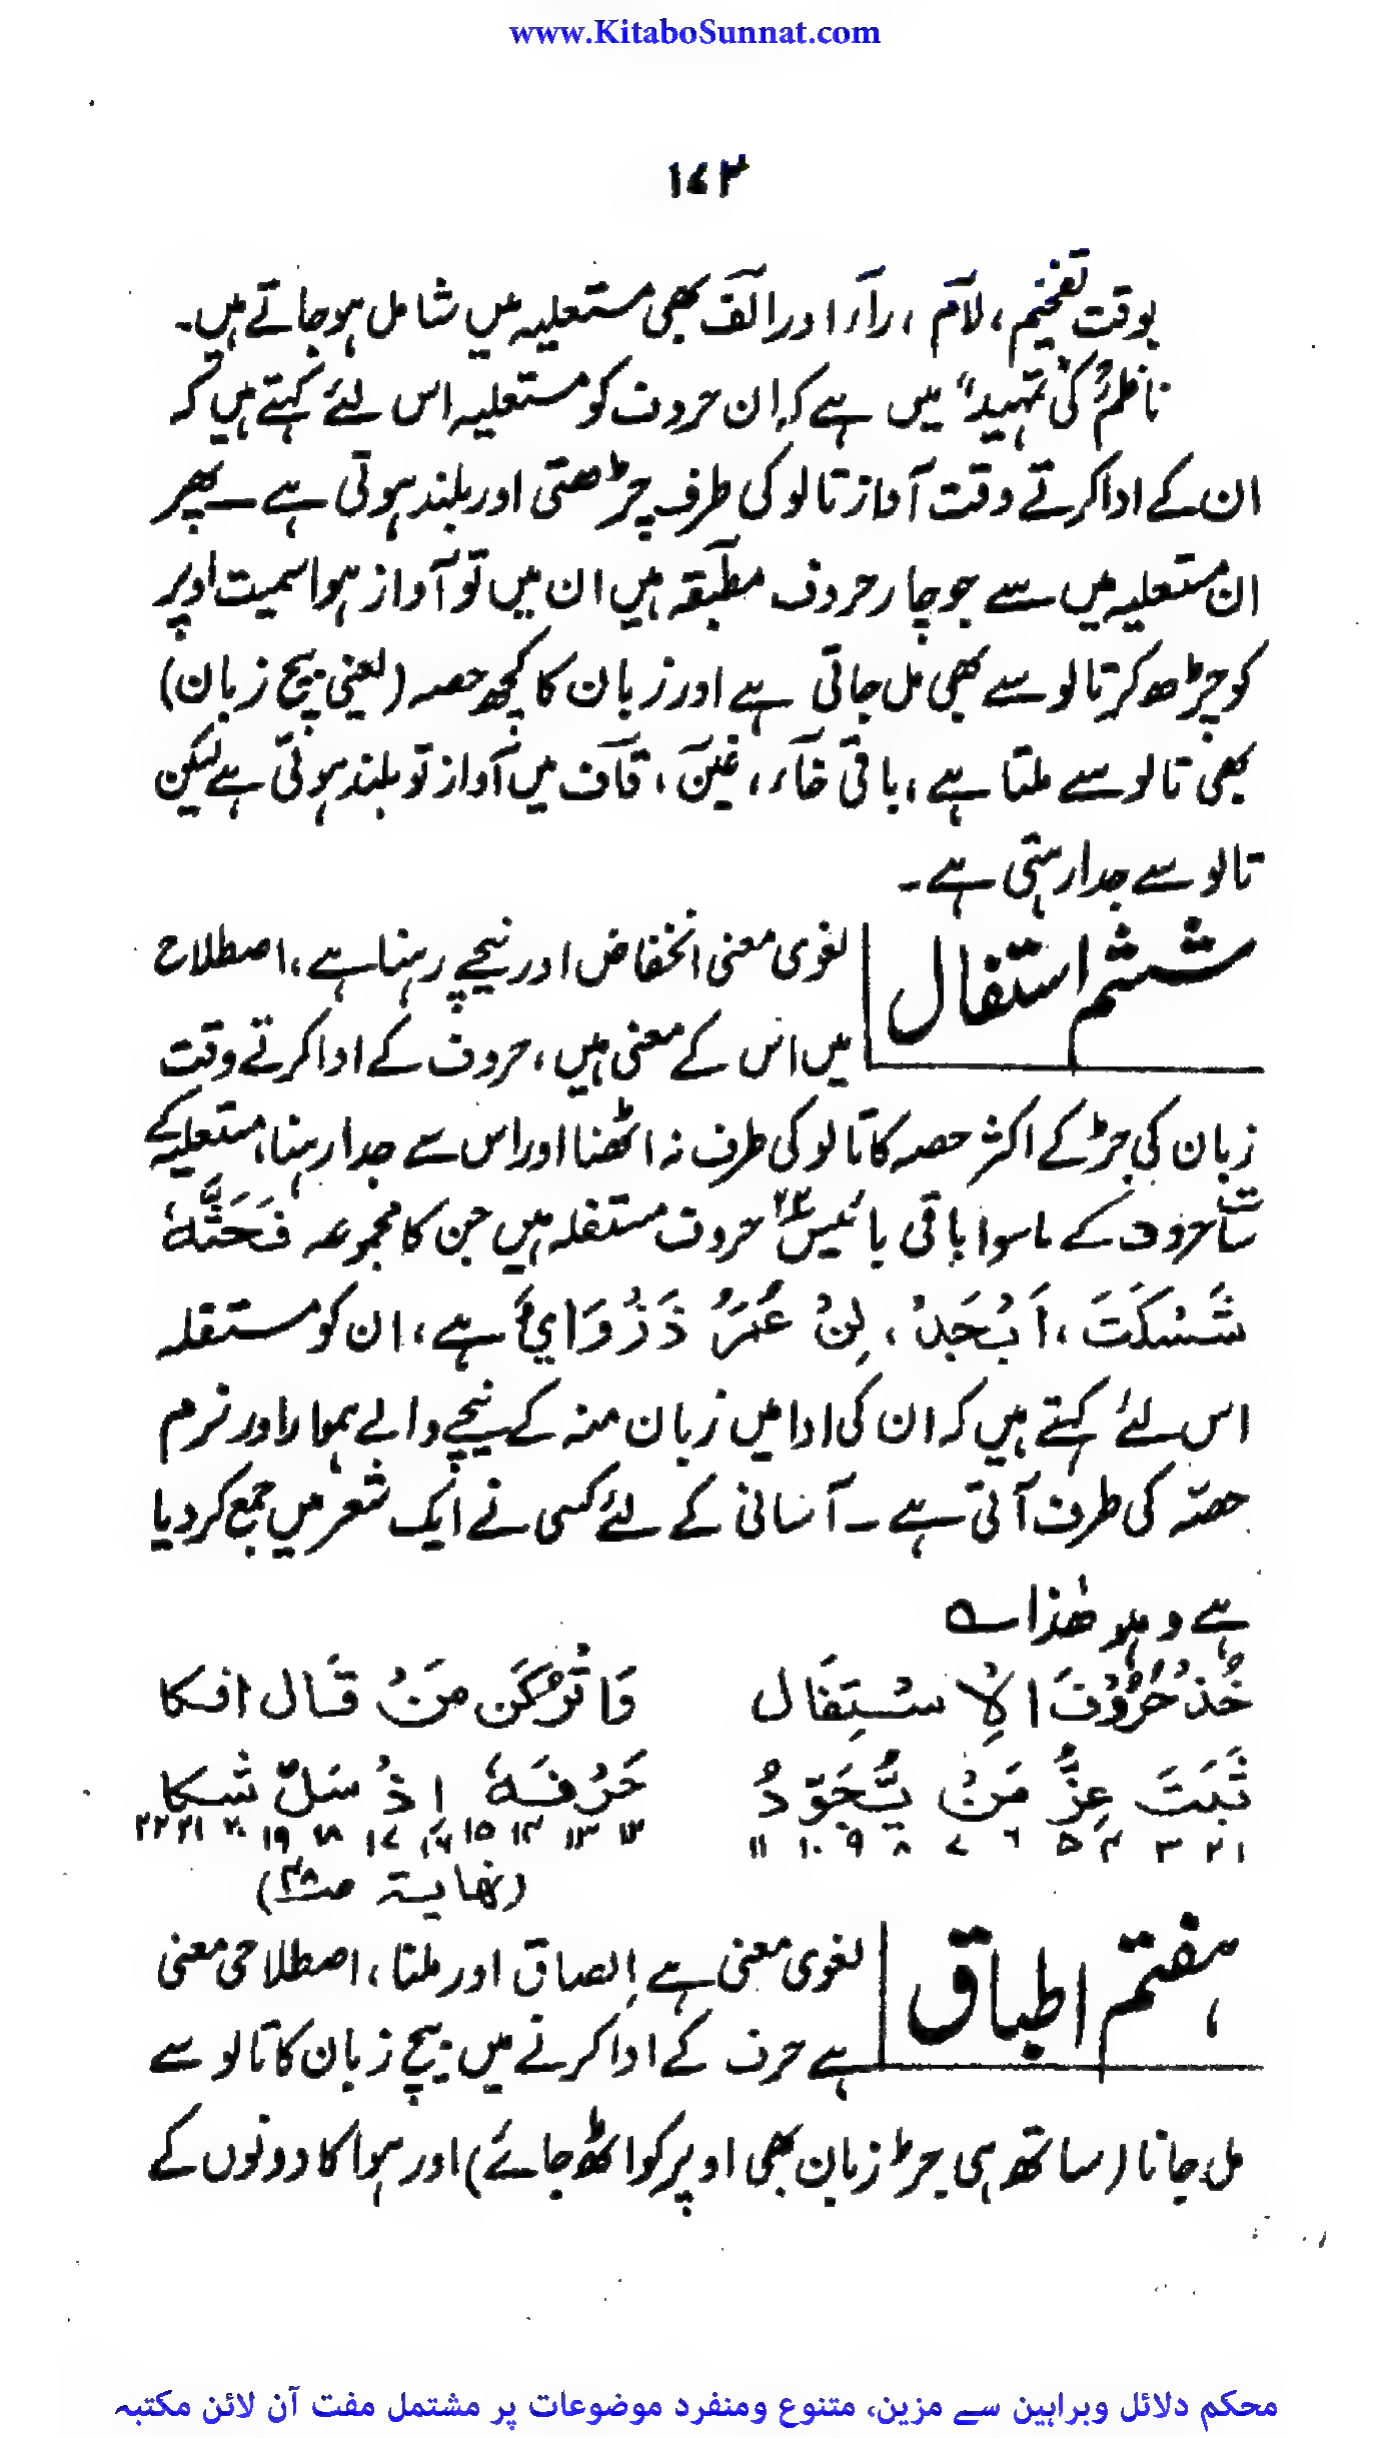 www.KitaboSunnat.com
۱۷۳
بوقت تفخیم، لآم، رآء اور الَف بھی مستعلیہ میں شامل ہوجاتے ہیں۔
ناظمؒ کی تمہید" میں ہے کہ ان حروف کو مستعلیہ اس لئے کہتے ہیں کہ
ان کے ادا کرتے وقت آواز تالو کی طرف چڑھتی اور بلند ہوتی ہے ــ پھر
ان مستعلیہ میں سے جو چار حروف مطبقہ ہیں ان میں تو آواز ہوا سمیت اوپر
کو چڑھ کر تالو سے بھی مل جاتی ہے اور زبان کا کچھ حصہ (یعنی بیچ زبان)
بھی تالو سے ملتا ہے، باقی خآء، غیَن، قآف میں آواز تو بلند ہوتی ہے لیکن
تالو سے جدا رہتی ہے۔
ششم استفال
لغوی معنی انخفاض اور نیچے رہنا ہے، اصطلاح
میں اس کے معنی ہیں، حروف کے ادا کرتے وقت
زبان کی جڑ کے اکثر حصہ کا تالو کی طرف نہ اٹھنا اور اس سے جدا رہنا، مستعلیہ کے
سات حروف کے ماسوا باقی بائیس ۲۲ حروف مستفلہ ہیں جن کا مجموعہ فَحَثَّهٗ
شَسْكَتَ، اَبْجَدْ، لِنْ عُمَرُ ذَزْوَايَ ہے، ان کو مستفلہ
اس لئے کہتے ہیں کہ ان کی ادا میں زبان منہ کے نیچے والے ہموار اور نرم
حصّہ کی طرف آتی ہے ۔ آسانی کے لئے کسی نے ایک شعر میں جمع کردیا
ہے وہو ھٰذا ؎
خُذْ حُرُوْفَ الْاِسْتِفَال وَاتْرُكَن مَنْ قَال افكا
ثَبَتَ عِزُّ مَنْ يُّجَوِّدُ حَرْفَهٗ اِذْ سَلَّ شَكا
۱ ۲ ۳ ۴ ۵ ۶ ۷ ۸ ۹ ۱۰ ۱۱ ۱۲ ۱۳ ۱۴ ۱۵ ۱۶ ۱۷ ۱۸ ۱۹ ۲۰ ۲۱ ۲۲
(نہایۃ ص۴۸)
ہفتم اطباق
لغوی معنی ہے اِلصاق اور ملنا، اصطلاحی معنی
ہے حرف کے ادا کرنے میں بیچ زبان کا تالو سے
مل جانا (ساتھ ہی جڑ زبان بھی اوپر کو اٹھ جائے) اور ہوا کا دونوں کے
محکم دلائل وبراہین سے مزین، متنوع ومنفرد موضوعات پر مشتمل مفت آن لائن مکتبہ